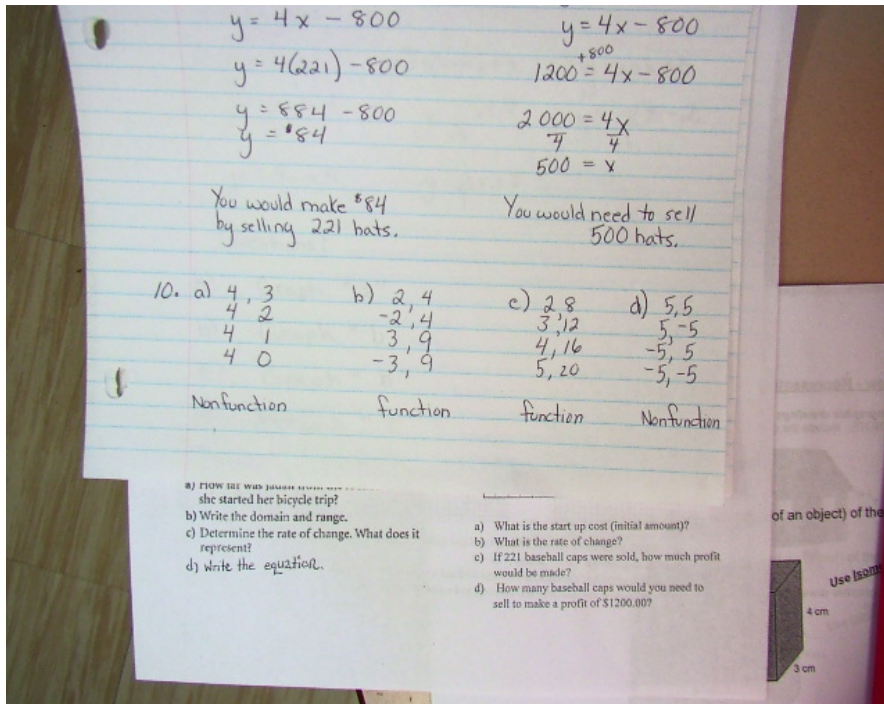 y = 4x - 800
y = 4(221) - 800
y = 884 - 800
y = $84
You would make $84
by selling 221 hats.
y = 4x - 800
+800
1200 = 4x - 800
2000 = 4x
4 4
500 = x
You would need to sell
500 hats.
10. a) 4, 3
4 2
4 1
4 0
Nonfunction
b) 2, 4
-2, 4
3, 9
-3, 9
function
c) 2, 8
3, 12
4, 16
5, 20
function
d) 5, 5
5, -5
-5, 5
-5, -5
Nonfunction
a) How far was
she started her bicycle trip?
b) Write the domain and range.
c) Determine the rate of change. What does it
represent?
d) Write the equation.
a) What is the start up cost (initial amount)?
b) What is the rate of change?
c) If 221 baseball caps were sold, how much profit
would be made?
d) How many baseball caps would you need to
sell to make a profit of $1200.00?
of an object) of the
Use
4 cm
3 cm